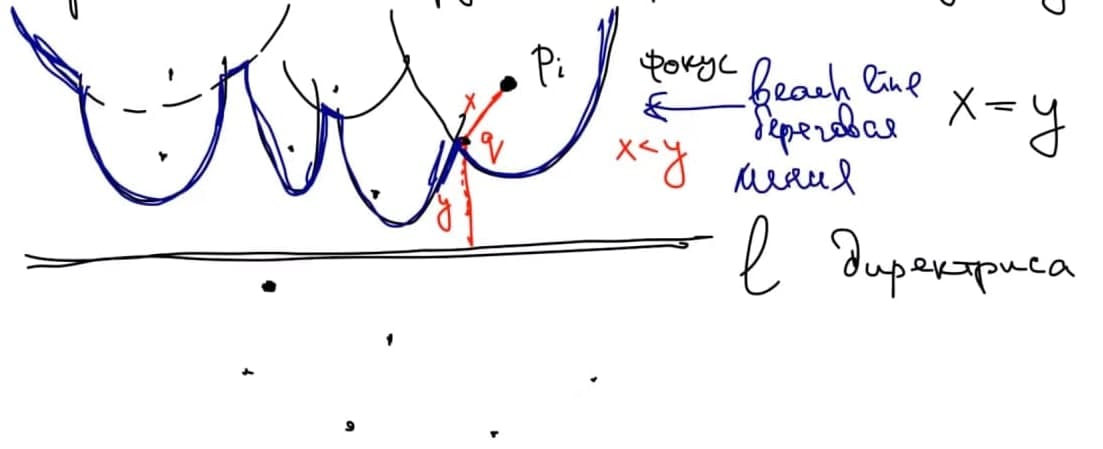 Pi
фокус
beach line
береговая
линия
x = y
x
q
x<y
y
l
директриса